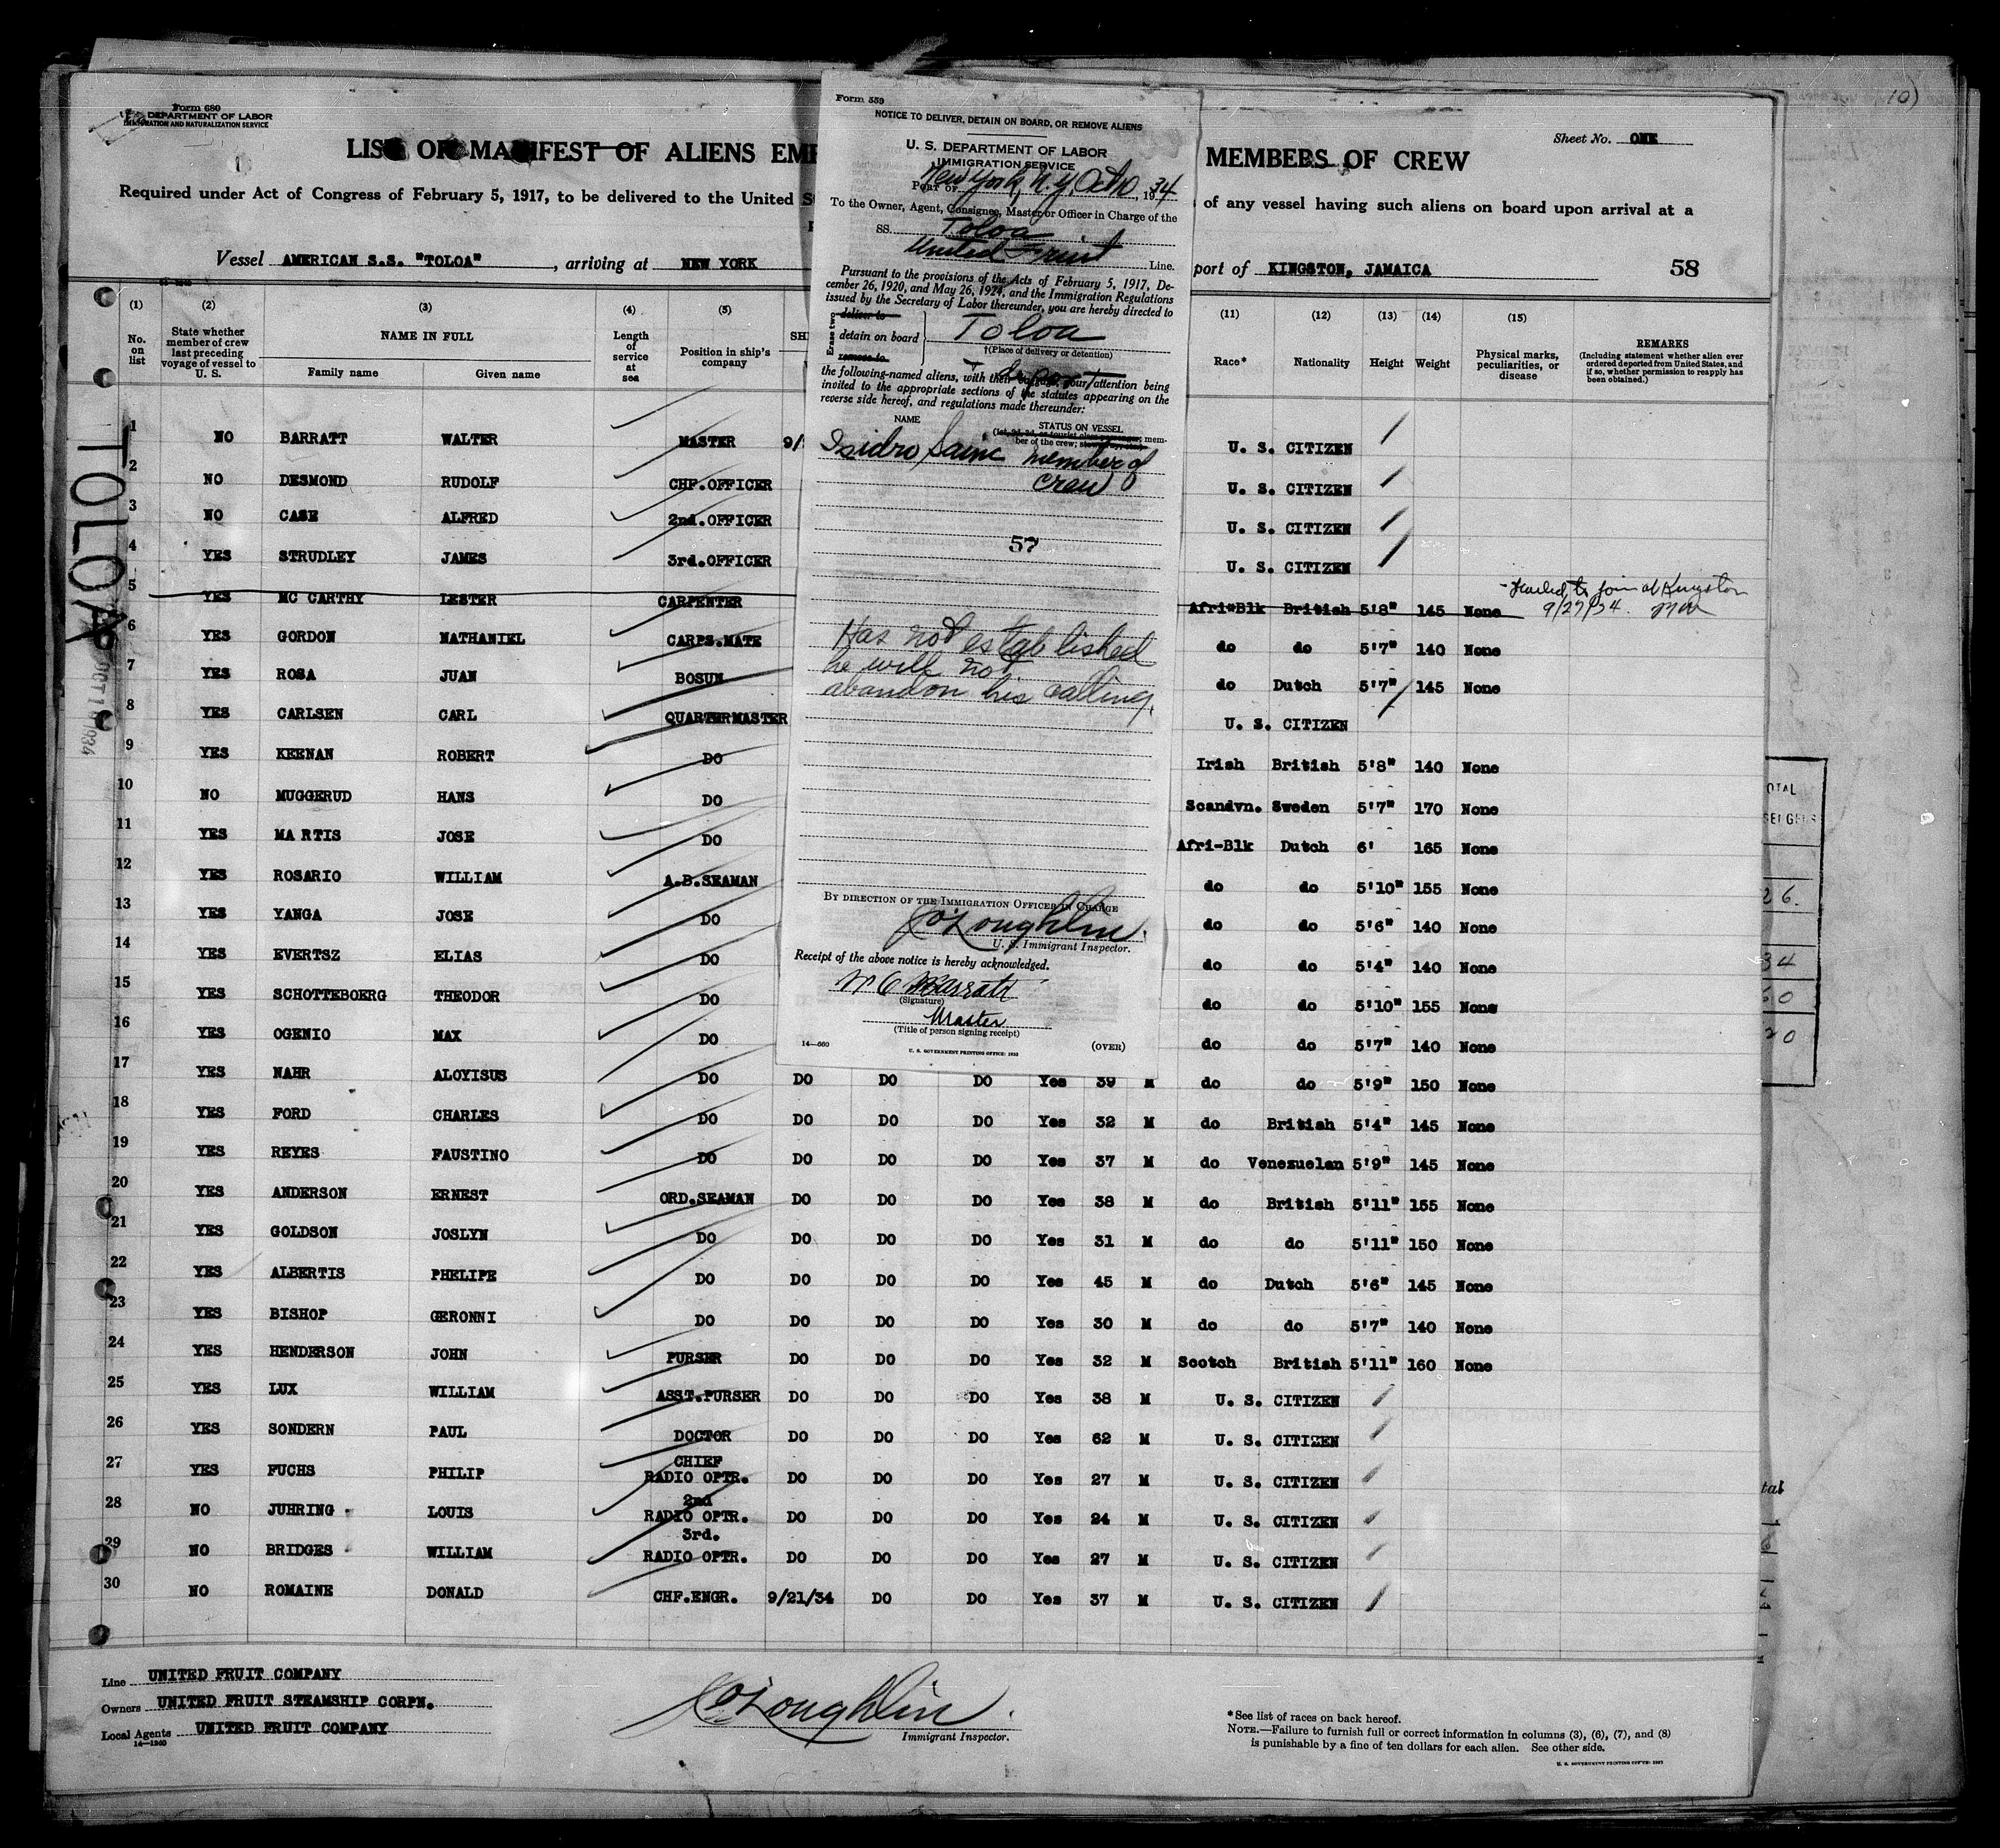 Form 680
U. S. DEPARTMENT OF LABOR
IMMIGRATION AND NATURALIZATION SERVICE
LIST OR MANIFEST OF ALIENS EM
MEMBERS OF CREW
Sheet No. ONE
Required under Act of Congress of February 5, 1917, to be delivered to the United S
of any vessel having such aliens on board upon arrival at a
Vessel AMERICAN S.S. "TOLOA" , arriving at NEW YORK
port of KINGSTON, JAMAICA
58
(1) (2) (3) (4) (5) (11) (12) (13) (14) (15)
No. on list
State whether member of crew last preceding voyage of vessel to U. S.
NAME IN FULL
Family name Given name
Length of service at sea
Position in ship's company
Race* Nationality Height Weight
Physical marks, peculiarities, or disease
REMARKS
(Including statement whether alien ever ordered deported from United States, and if so, whether permission to reapply has been obtained.)
1 NO BARRATT WALTER MASTER 9/ U. S. CITIZEN
2 NO DESMOND RUDOLF CHF.OFFICER U. S. CITIZEN
3 NO CASE ALFRED 2nd.OFFICER U. S. CITIZEN
4 YES STRUDLEY JAMES 3rd.OFFICER U. S. CITIZEN
5 YES MC CARTHY LESTER CARPENTER Afri-Blk British 5'8" 145 None Failed to join at Kingston
9/27/34.
6 YES GORDON NATHANIEL CARPS.MATE do do 5'7" 140 None
7 YES ROSA JUAN BOSUN do Dutch 5'7" 145 None
8 YES CARLSEN CARL QUARTERMASTER U. S. CITIZEN
9 YES KEENAN ROBERT DO Irish British 5'8" 140 None
10 NO MUGGERUD HANS DO Scandvn. Sweden 5'7" 170 None
11 YES MARTIS JOSE DO Afri-Blk Dutch 6' 165 None
12 YES ROSARIO WILLIAM A.B.SEAMAN do do 5'10" 155 None
13 YES YANGA JOSE DO do do 5'6" 140 None
14 YES EVERTSZ ELIAS DO do do 5'4" 140 None
15 YES SCHOTTEBOERG THEODOR DO do do 5'10" 155 None
16 YES OGENIO MAX DO do do 5'7" 140 None
17 YES NAHR ALOYISUS DO DO DO DO Yes 39 M do do 5'9" 150 None
18 YES FORD CHARLES DO DO DO DO Yes 32 M do British 5'4" 145 None
19 YES REYES FAUSTINO DO DO DO DO Yes 37 M do Venezuelan 5'9" 145 None
20 YES ANDERSON ERNEST ORD.SEAMAN DO DO DO Yes 38 M do British 5'11" 155 None
21 YES GOLDSON JOSLYN DO DO DO DO Yes 31 M do do 5'11" 150 None
22 YES ALBERTIS PHELIPE DO DO DO DO Yes 45 M do Dutch 5'6" 145 None
23 YES BISHOP GERONNI DO DO DO DO Yes 30 M do do 5'7" 140 None
24 YES HENDERSON JOHN PURSER DO DO DO Yes 32 M Scotch British 5'11" 160 None
25 YES LUX WILLIAM ASST.PURSER DO DO DO Yes 38 M U. S. CITIZEN
26 YES SONDERN PAUL DOCTOR DO DO DO Yes 62 M U. S. CITIZEN
27 YES FUCHS PHILIP CHIEF RADIO OPTR. DO DO DO Yes 27 M U. S. CITIZEN
28 NO JUHRING LOUIS 2nd RADIO OPTR. DO DO DO Yes 24 M U. S. CITIZEN
29 NO BRIDGES WILLIAM 3rd. RADIO OPTR. DO DO DO Yes 27 M U. S. CITIZEN
30 NO ROMAINE DONALD CHF.ENGR. 9/21/34 DO DO Yes 37 M U. S. CITIZEN
TOLOA
Line UNITED FRUIT COMPANY
Owners UNITED FRUIT STEAMSHIP CORPN.
Local Agents UNITED FRUIT COMPANY
14—1240
O'Loughlin
Immigrant Inspector.
*See list of races on back hereof.
NOTE.—Failure to furnish full or correct information in columns (3), (6), (7), and (8)
is punishable by a fine of ten dollars for each alien. See other side.
Form 559
NOTICE TO DELIVER, DETAIN ON BOARD, OR REMOVE ALIENS
U. S. DEPARTMENT OF LABOR
IMMIGRATION SERVICE
PORT OF New York, N.Y. Oct 10, 1934
To the Owner, Agent, Consignee, Master or Officer in Charge of the
SS. Toloa
United Fruit Line.
Pursuant to the provisions of the Acts of February 5, 1917, De-
cember 26, 1920, and May 26, 1924, and the Immigration Regulations
issued by the Secretary of Labor thereunder, you are hereby directed to
Erase two
deliver to
detain on board
remove to
Toloa
†(Place of delivery or detention)
deport
the following-named aliens, with their baggage, your attention being
invited to the appropriate sections of the statutes appearing on the
reverse side hereof, and regulations made thereunder:
NAME STATUS ON VESSEL
ber of the crew;
Isidro Sainc member of
crew
57
Has not established
he will not
abandon his calling.
BY DIRECTION OF THE IMMIGRATION OFFICER IN CHARGE
O'Loughlin
U. S. Immigrant Inspector.
Receipt of the above notice is hereby acknowledged.
W C Barratt
(Signature)
Master
(Title of person signing receipt)
14—660 U. S. GOVERNMENT PRINTING OFFICE: 1933 (OVER)